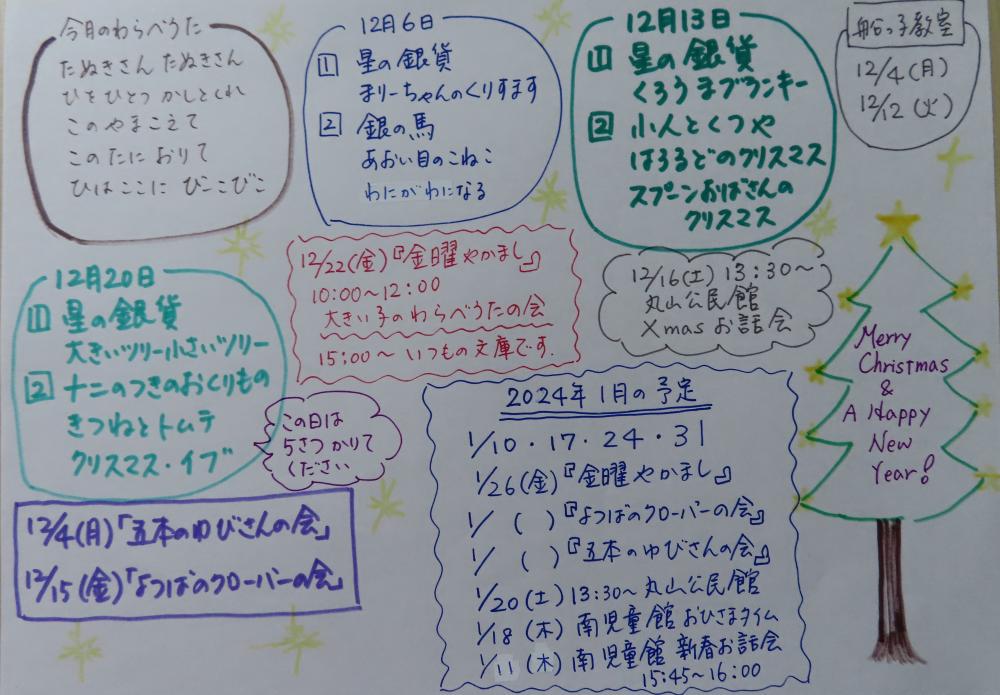 今月のわらべうた
たぬきさん たぬきさん
ひをひとつ かしとくれ
このやまこえて
このたにおりて
ひはここに ぴこぴこ
12月6日
1 星の銀貨
まりーちゃんのくりすます
2 銀の馬
あおい目のこねこ
わにがわになる
12月13日
1 星の銀貨
くろうまブランキー
2 小人とくつや
はろるどのクリスマス
スプーンおばさんの
クリスマス
船石っ子教室
12/4(月)
12/12(火)
12月20日
1 星の銀貨
大きいツリー小さいツリー
2 十二のつきのおくりもの
きつねとトムテ
クリスマス・イブ
この日は
5さつかりて
ください
12/22(金)『金曜やかまし』
10:00～12:00
大きい子のわらべうたの会
15:00～いつもの文庫です.
12/16(土) 13:30～
丸山公民館
Xmasお話会
12/4(月)「五本のゆびさんの会」
12/15(金)「よつばのクローバーの会」
2024年1月の予定
1/10・17・24・31
1/26(金)『金曜やかまし』
1/ ( )『よつばのクローバーの会』
1/ ( )『五本のゆびさんの会』
1/20(土)13:30～丸山公民館
1/18(木)南児童館おひさまタイム
1/11(木)南児童館 新春お話会
15:45～16:00
Merry
Christmas
&
A Happy
New
Year!